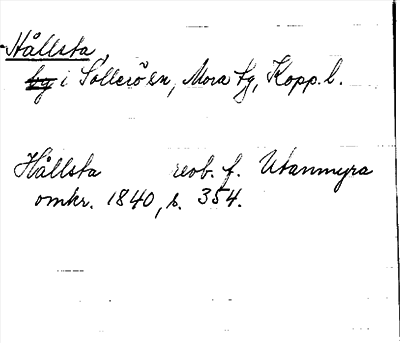 -Hållsta,
by i Sollerö sn, Mora tg, Kopp. l.
Hållsta reob. f. Utanmyra
omkr. 1840, s. 354.